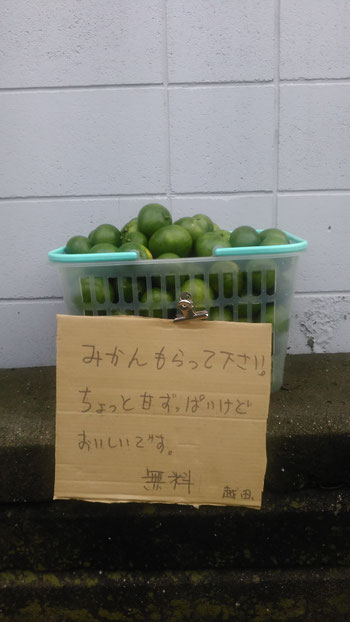 みかんもらって下さい!
ちょっと甘ずっぱいけど
おいしいです。
無料
越田